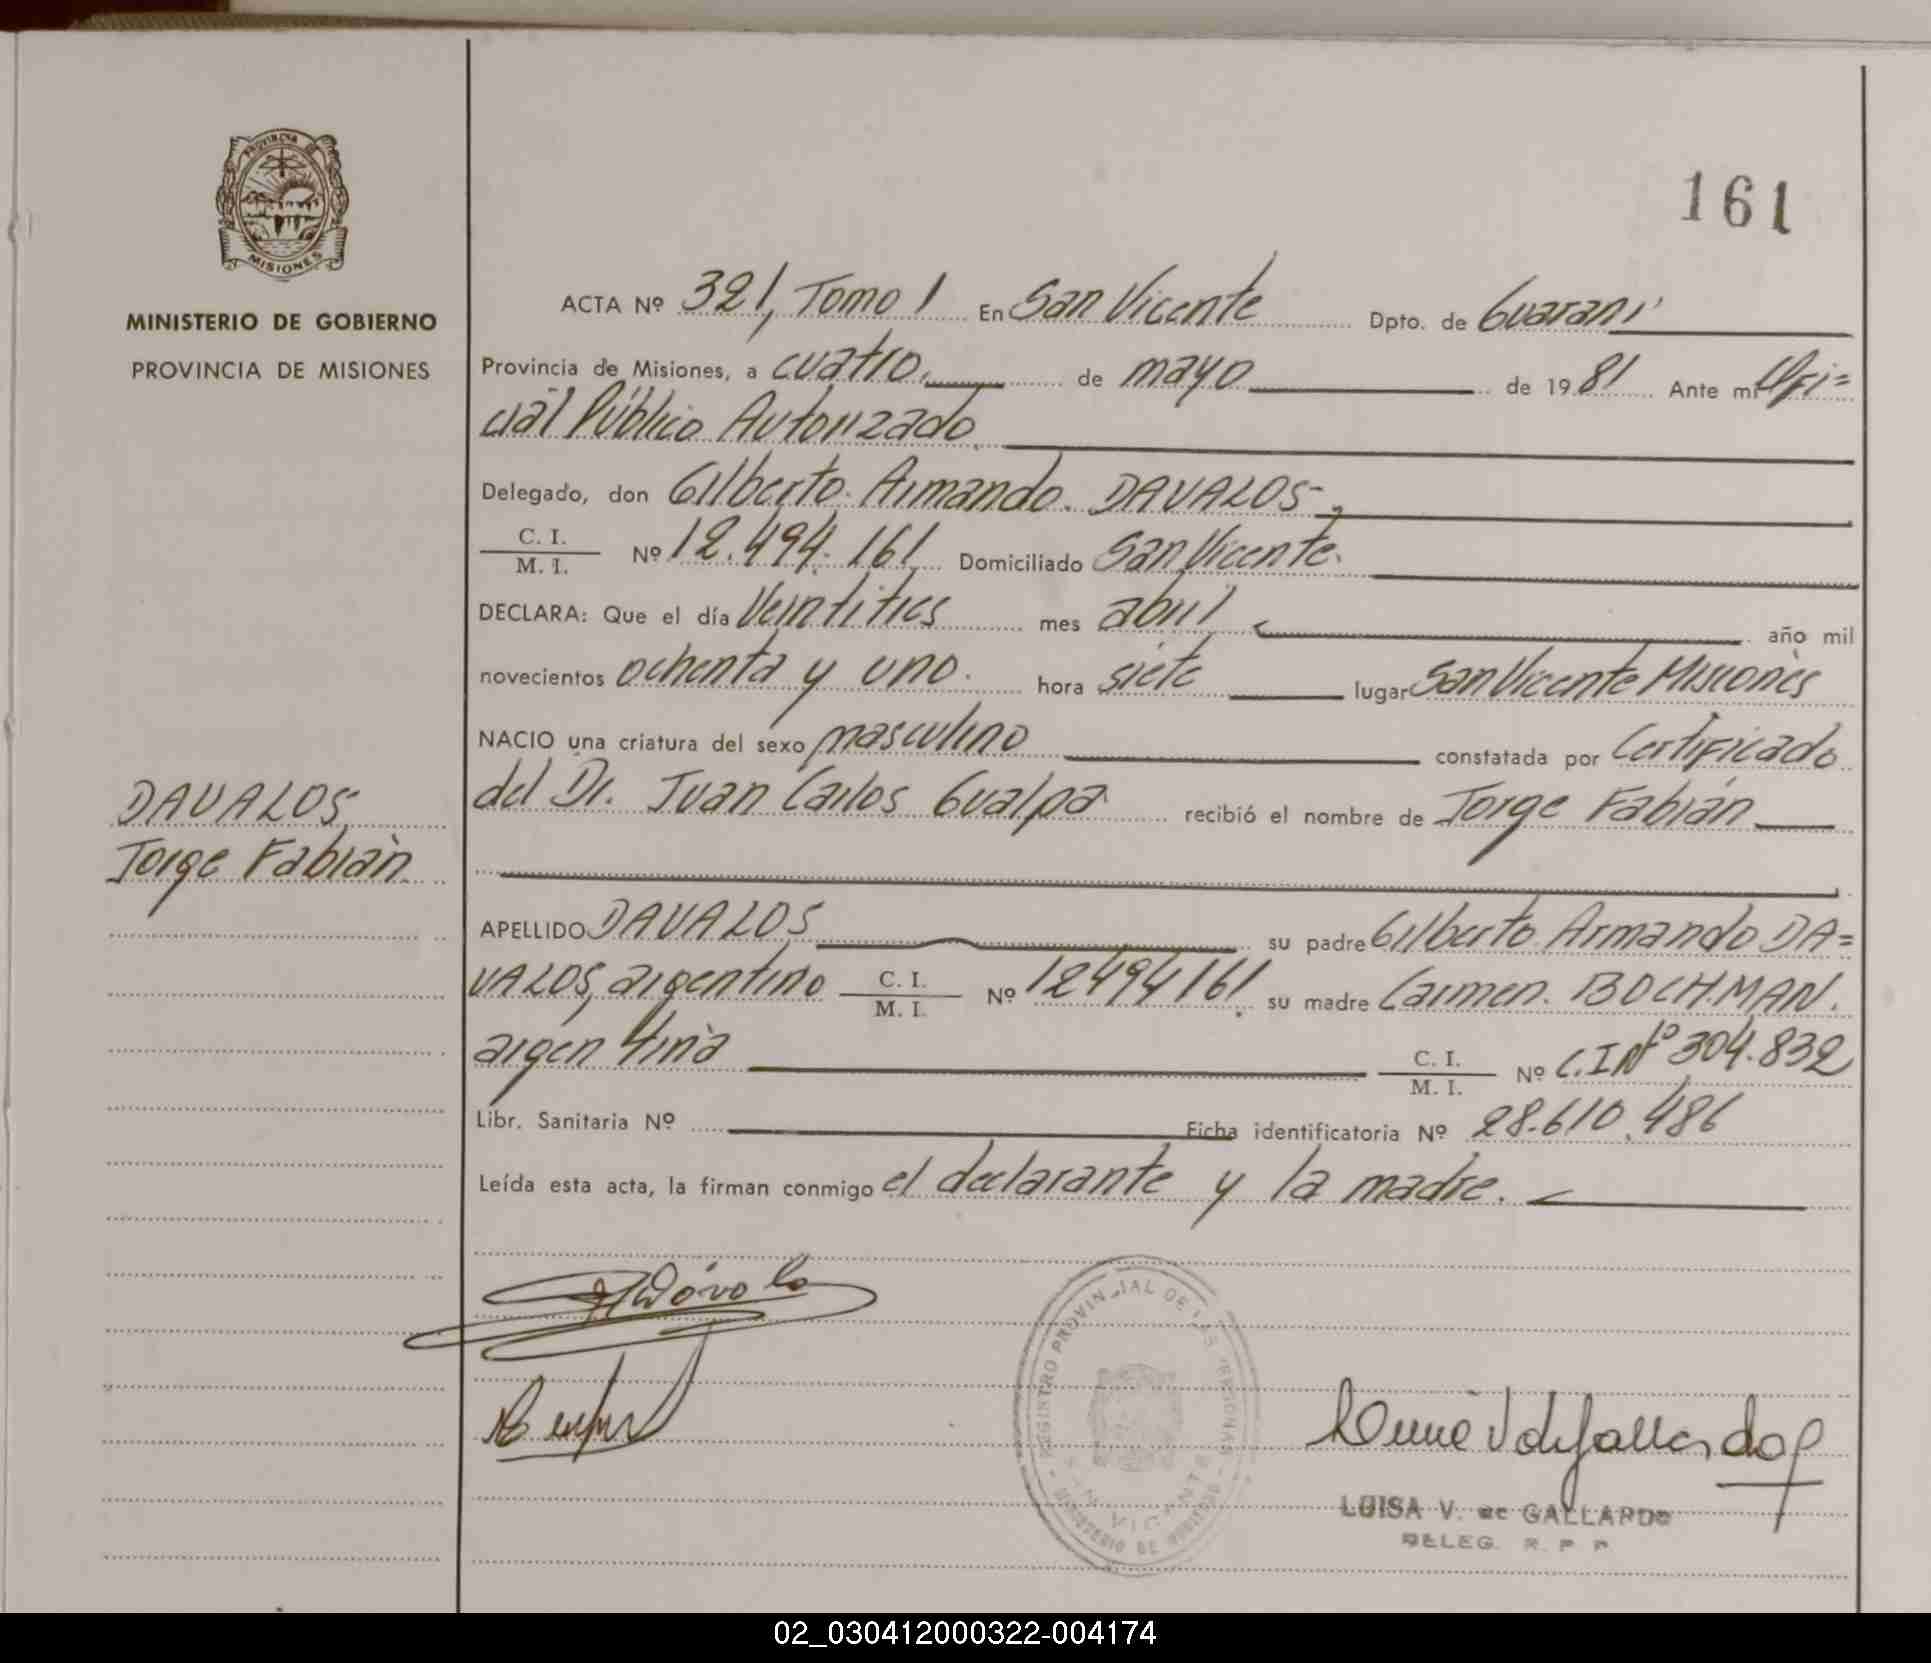 161
PROVINCIA DE
MISIONES
MINISTERIO DE GOBIERNO
PROVINCIA DE MISIONES
ACTA Nº 321, Tomo 1 En San Vicente Dpto. de Guaraní
Provincia de Misiones, a cuatro. de mayo de 1981 Ante mí Ofi=
cial Público Autorizado
Delegado, don Gilberto Armando DAVALOS-,
C. I.
M. I.
Nº 12.494.161 Domiciliado San Vicente.
DECLARA: Que el día Veintitres mes abril año mil
novecientos ochenta y uno. hora siete lugar San Vicente Misiones
NACIO una criatura del sexo masculino constatada por Certificado
del Dr. Juan Carlos Gualpa recibió el nombre de Jorge Fabián
DAVALOS,
Jorge Fabián
APELLIDO DAVALOS su padre Gilberto Armando DA=
VALOS, argentino C. I.
M. I.
Nº 12494161. su madre Carmen. BOCHMAN.
argentina C. I.
M. I.
Nº C.I Nº 304.832
Libr. Sanitaria Nº Ficha identificatoria Nº 28.610.486
Leída esta acta, la firman conmigo el declarante y la madre.
REGISTRO PROVINCIAL DE LAS PERSONAS
SAN VICENTE
MINISTERIO DE GOBIERNO
LUISA V. de GALLARDO
DELEG. R. P. P.
02_030412000322-004174